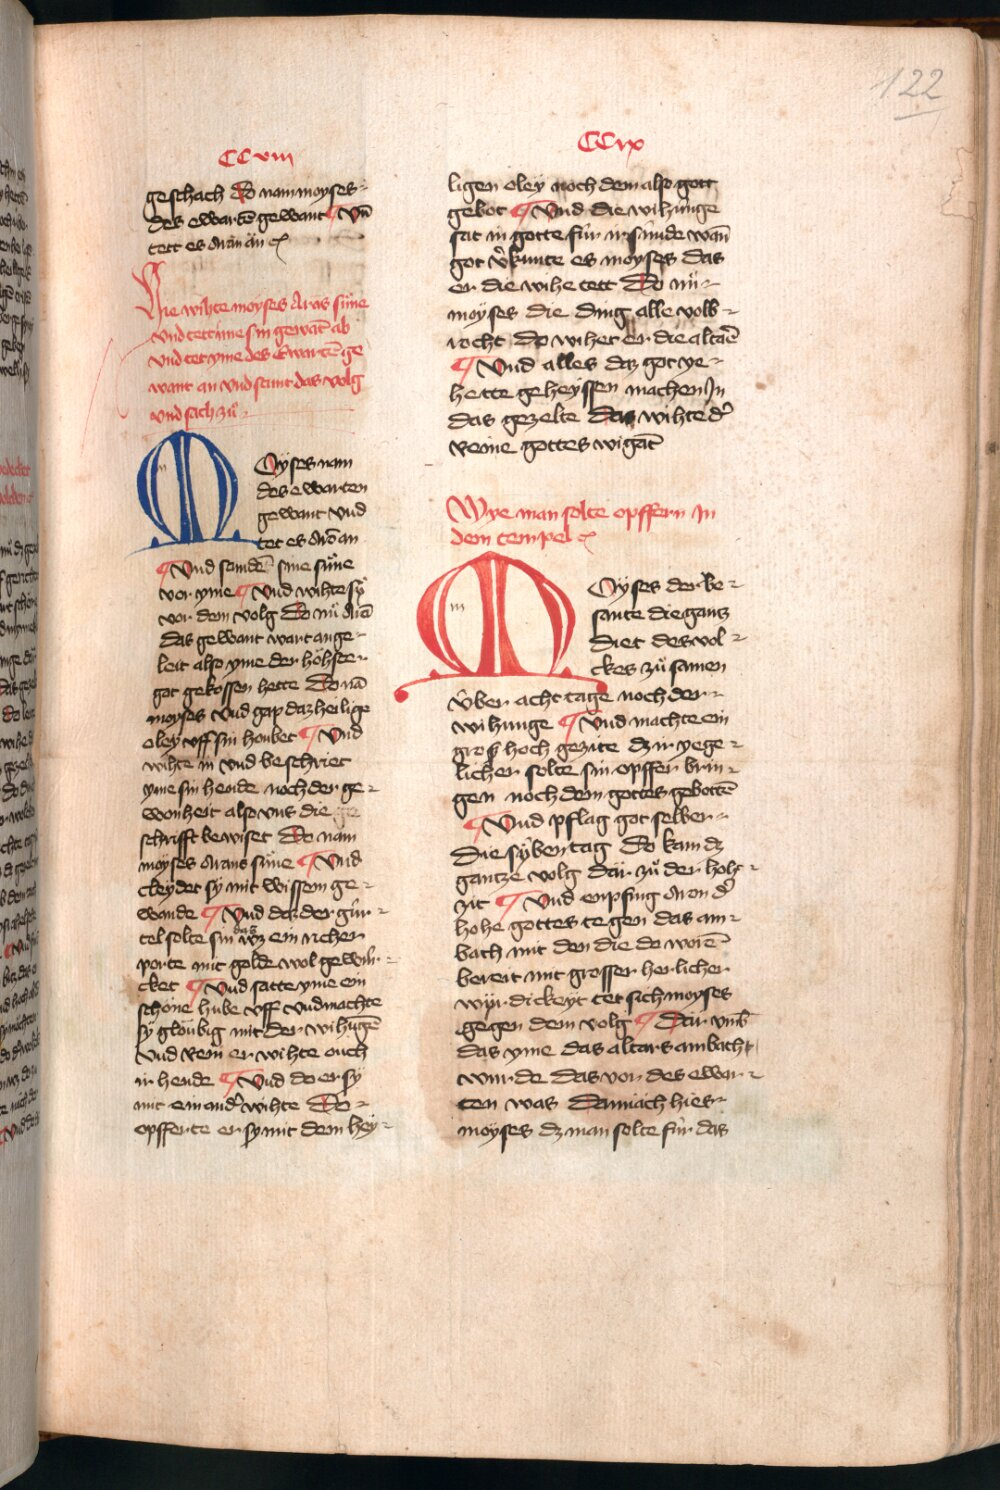 122
CCviii
geschach Do nam moyses
des ewartē gewant ¶ Vn̄
tett es Aran an
Hie wihte moyses Arās süne
vnd tett inne sin gewāt ab
vnd tet yme des Ewartē ge
want an vnd samt das volg
vnd sach zů
MOyses nam
des ewarten
gewant vnd
tet es Arō an
¶ Vnd sin süne
vor yme ¶ Vnd wihte sÿ
vor dem volg Do nů Arā
das gewant wart ange-
leit also yme der höhster
got gekossen hette Do nā
moyses vnd gap daz heilige
oley vff sin houbet ¶ Vnd
wihte in vnd beschriet
yme sin hende noch der ge-
wonheit also vns die
schrifft bewiset Do nam
moyses Arans süne ¶ Vnd
cleydet sy mit wissem ge-
wande ¶ Vnd daz der gür-
tel solte sin daz ein richer
porte mit golde wol gewür-
cket ¶ Vnd satte yme ein
schöne hube vff vnd machte
sÿ glöubig mit der wihūge
vnd rein er wihte ouch
ir hende ¶ Vnd do er sy
mit einand̓ wihte Do
opfferte er sy mit dem hey-
CCix
ligen oley noch dem also gott
gebot ¶ Vnd die wihunge
sat in gotte für ir sünde wan̄
got v̓kunte es moyses das
er die wihe tett Do nů
moyses die ding alle volb-
rocht do wihet er die altaē
¶ Vnd alles daz got ye-
hette geheyssen machen Jn
das gezelte Das wihte d̓
reine gottes wigāt
Wye man solte opffern Jn
dem tempel
MOyses der be-
sante die gantz
diet des vol-
ckes zů samen
v̈ber acht tage noch der
wihunge ¶ Vnd machte ein
gros hoch gezite dz ir yege-
licher solte sin opffer brin-
gen noch dem gottes gebottē
¶ Vnd pflag got selber
Die sÿben tag Do kam dz
gantze volg dar zů der hoh-
zit ¶ Vnd enpfing Aron d̓
hohe gottes tegen das am-
bach mit den die do worē
bereit mit grosser herlicher
wir dickeyt tet sich moyses
gegen dem volg ¶ Dar vmb̄
das yme das altars ambacht
wurde das vor des ewar-
ten was Darnach hies
moyses dz man solte für das